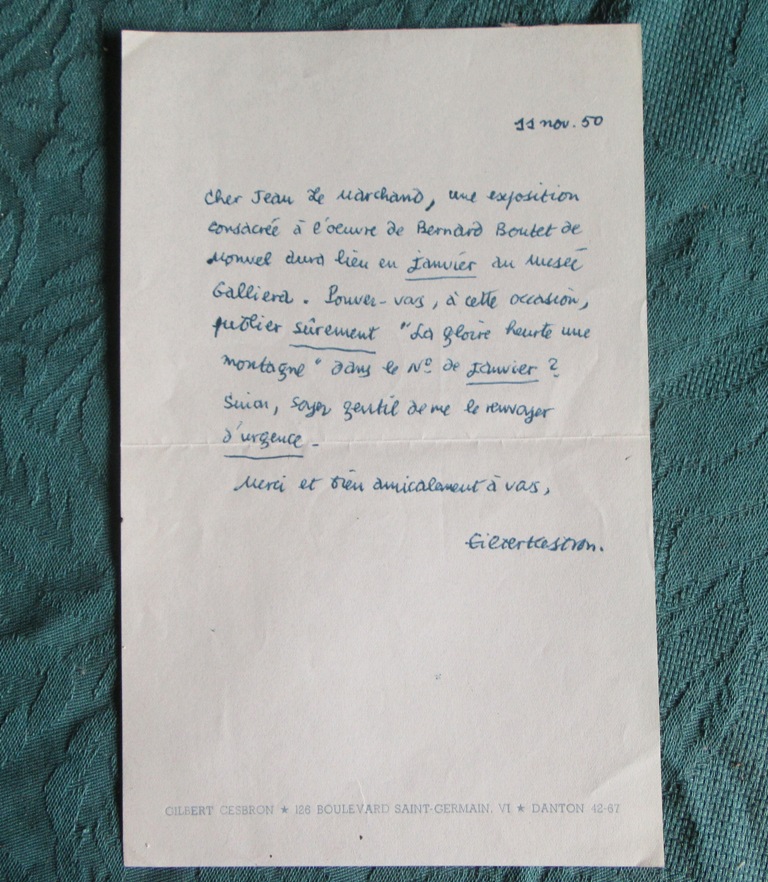 11 nov. 50
Cher Jean Le Marchand, une exposition
consacrée à l'oeuvre de Bernard Boutet de
Monvel aura lieu en Janvier au Musée
Galliera. Pouvez-vous, à cette occasion,
publier sûrement "La gloire heurte une
montagne" dans le Nº de Janvier ?
Sinon, soyez gentil de me le renvoyer
d'urgence -
Merci et bien amicalement à vous,
Gilbert Cesbron.
GILBERT CESBRON ★ 126 BOULEVARD SAINT-GERMAIN. VI ★ DANTON 42-67